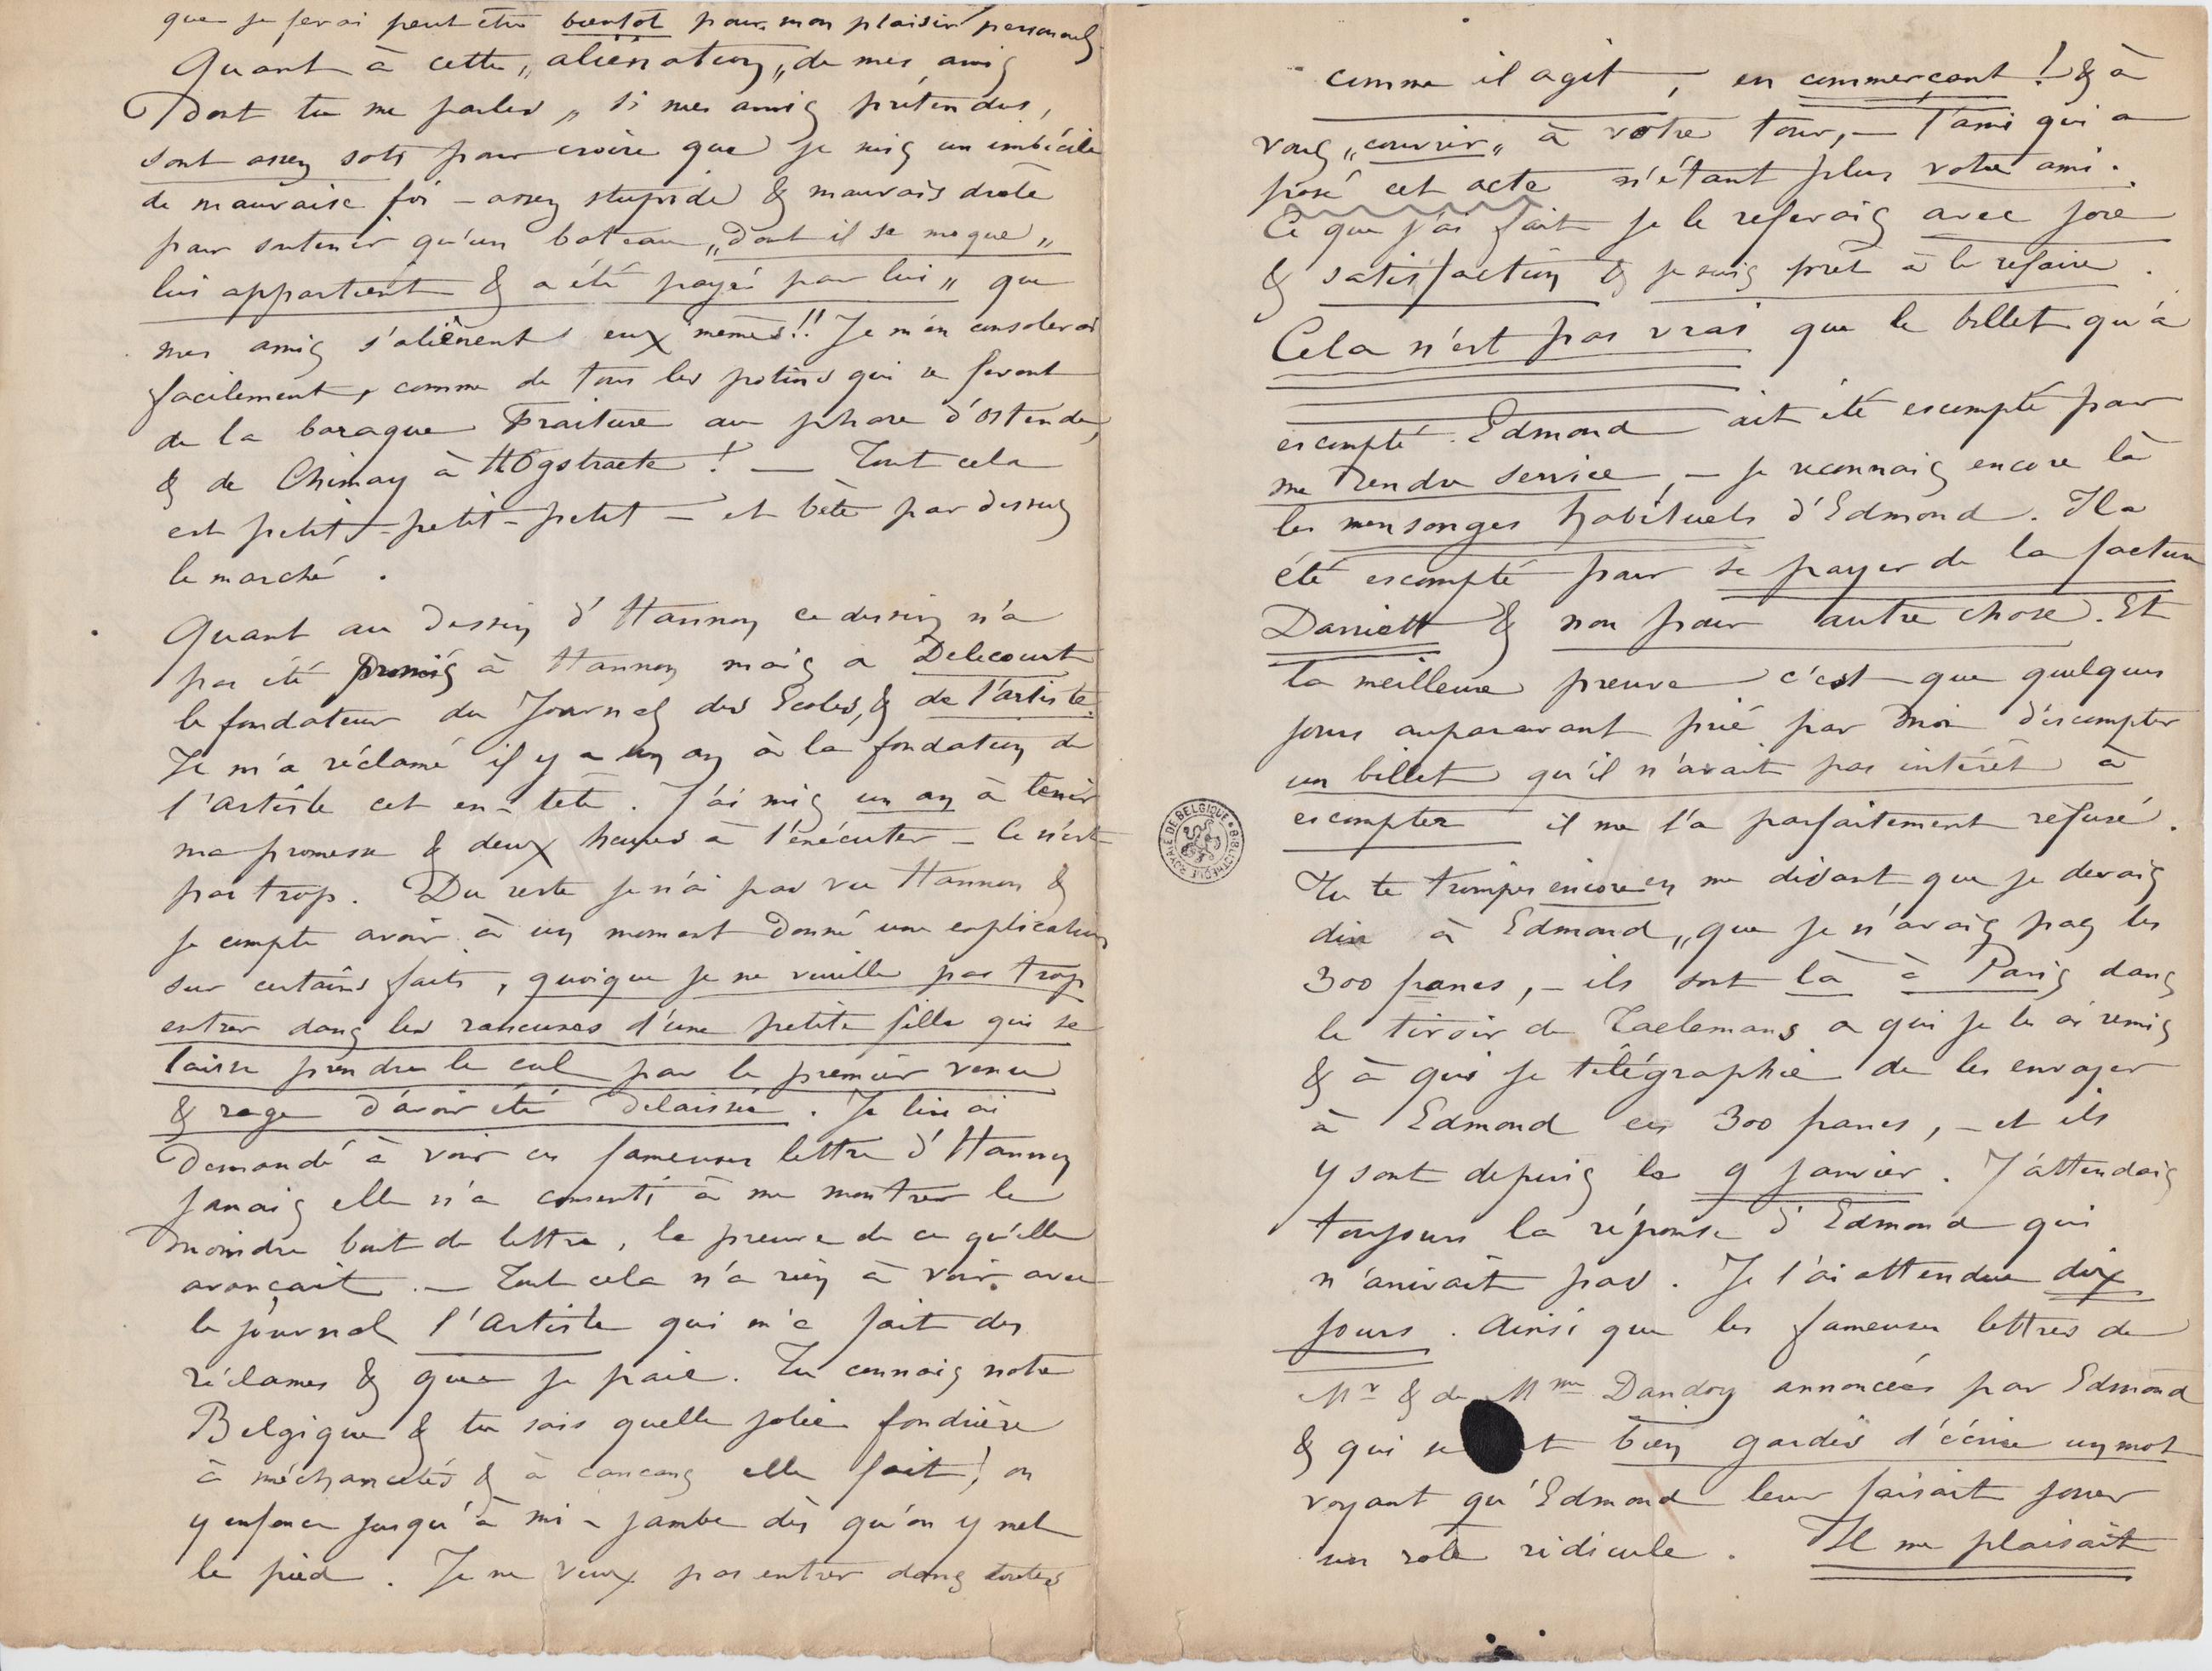 que je ferai peut être bientôt pour mon plaisir personnel,
Quant à cette „aliénation„ de mes amis
dont tu me parles, „ si mes amis prétendus,
sont assez sots pour croire que je suis un imbécile
de mauvaise foi – assez stupide & mauvais drôle
pour soutenir qu'un bateau „dont il se moque„
lui appartient & a été payé par lui „ que
mes amis s'aliènent eux mêmes!! Je m'en consolerai
facilement, comme de tous les potins qui se feront
de la baraque Fraiture au phare d'Ostende,
& de Chimay à Hôgstraete! — Tout cela
est petit – petit – petit – et bête par dessus
le marché.
Quant au dessin d'Hannon ce dessin n'a
pas été promis à Hannon mais a Delecourt
le fondateur du Journal des Ecoles, & de l'artiste.
Il m'a réclamé il y a un an à la fondation de
l'artiste cet en-tête. J'ai mis un an à tenir
ma promesse & deux heures à l'exécuter – Ce n'est
pas trop. Du reste je n'ai pas vu Hannon &
je compte avoir à un moment donné une explication
sur certains faits, quoique je ne veuille pas trop
entrer dans les rancunes d'une petite fille qui se
laisse prendre le cul par le premier venu
& rage d'avoir été délaissée. Je lui ai
demandé à voir ces fameuses lettre d'Hannon
jamais elle n'a consenti à me montrer le
moindre bout de lettre, la preuve de ce qu'elle
avançait. — Tout cela n'a rien à voir avec
le journal l'Artiste qui m'a fait des
réclames & que je paie. Tu connais notre
Belgique & tu sais quelle jolie fondrière
à méchancetés & à cancans elle fait! on
y enfonce jusqu'à mi-jambe dès qu'on y met
le pied. Je ne veux pas entrer dans toutes
comme il agit, en commerçant! & à
vous „couvrir„ à votre tour, – l'ami qui a
posé cet acte n'étant plus votre ami.
Ce que j'ai fait je le referais avec joie
& satisfaction & je suis prêt à le refaire.
Cela n'est pas vrai que le billet qu'a
escompté Edmond ait été escompté pour
me rendre service, – je reconnais encore là
les mensonges habituels d'Edmond. Il a
été escompté pour se payer de la facture
Daniell & non pour autre chose. Et
la meilleure preuve c'est que quelques
jours auparavant prié par moi d'escompter
un billet qu'il n'avait pas intérêt à
escompter il me l'a parfaitement refusé.
Tu te trompes encore en me disant que je devais
dire à Edmond „que je n'avais pas les
300 francs, – ils sont là à Paris dans
le tiroir de Taelemans a qui je les ai remis
& à qui je télégraphie de les envoyer
à Edmond ces 300 francs, – et ils
y sont depuis le 9 janvier. J'attendais
toujours la réponse d'Edmond qui
n'arrivait pas. Je l'ai attendue dix
jours. Ainsi que les fameuses lettres de
Mr & de Mme Dandoy annoncées par Edmond
& qui se bien gardés d'écrire un mot
voyant qu'Edmond leur faisait jouer
un rôle ridicule. Il me plaisait
BIBLIOTHEQUE ROYALE DE BELGIQUE